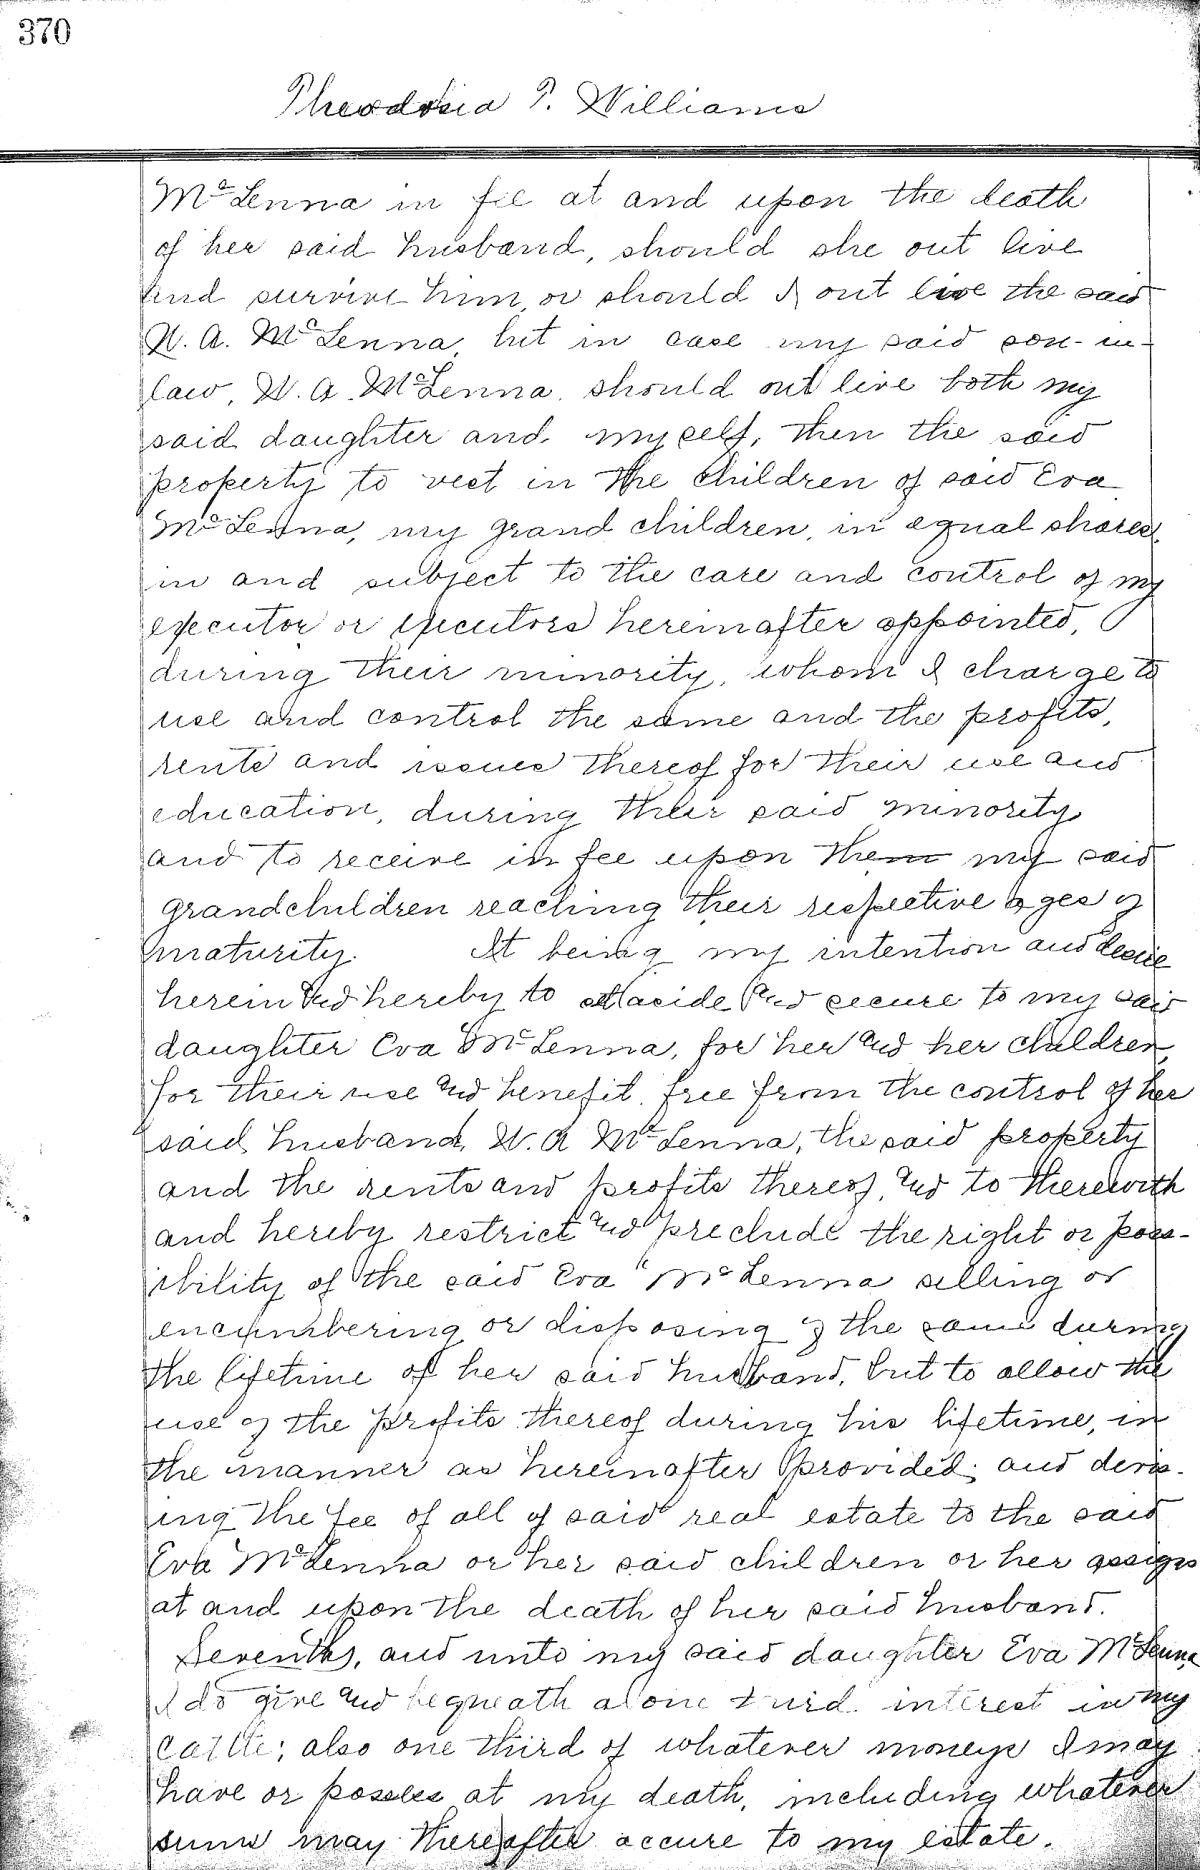 370
Theodosia P. Williams
McLenna in fee at and upon the death
of her said husband, should she out live
and survive him, or should I out live the said
W. A. McLenna, but in case my said son-in-
law, W. A. McLenna, should out live both my
said daughter and myself, then the said
property to vest in the children of said Eva
McLenna, my grand children, in equal shares,
in and subject to the care and control of my
executor or executors hereinafter appointed,
during their minority, whom I charge to
use and control the same and the profits,
rents and issues thereof for their use and
education, during their said minority
and to receive in fee upon them my said
grandchildren reaching their respective ages of
maturity. It being my intention and desire
herein and hereby to set aside and secure to my said
daughter Eva McLenna, for her and her children,
for their use and benefit, free from the control of her
said husband, W. A McLenna, the said property
and the rents and profits thereof, and to therewith
and hereby restrict and preclude the right or poss-
ibility of the said Eva McLenna selling or
encumbering or disposing of the same during
the lifetime of her said husband, but to allow the
use of the profits thereof during his lifetime, in
the manner as hereinafter provided; and devis-
ing the fee of all of said real estate to the said
Eva McLenna or her said children or her assigns
at and upon the death of her said husband.
Seventh, and unto my said daughter Eva McLenna
I do give and bequeath a one third interest in my
cattle; also one third of whatever moneys I may
have or possess at my death, including whatever
sums may thereafter accure to my estate.